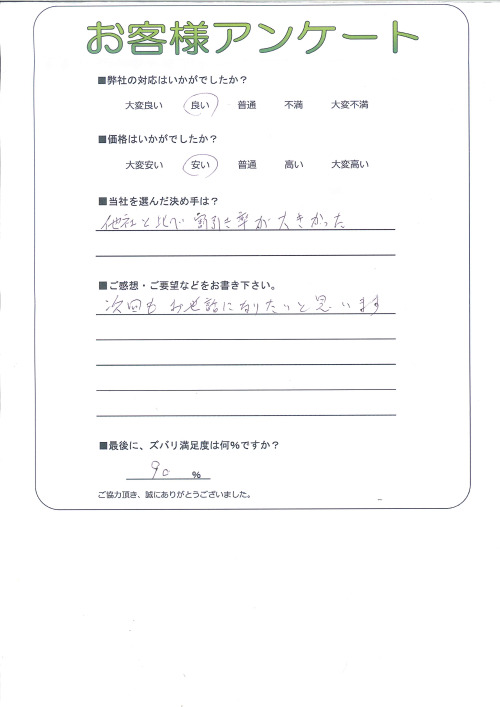 お客様アンケート
■弊社の対応はいかがでしたか？
大変良い 良い 普通 不満 大変不満
■価格はいかがでしたか？
大変安い 安い 普通 高い 大変高い
■当社を選んだ決め手は？
他社と比べ割引き率が大きかった
■ご感想・ご要望などをお書き下さい。
次回もお世話になりたいと思います
■最後に、ズバリ満足度は何%ですか？
90 %
ご協力頂き、誠にありがとうございました。